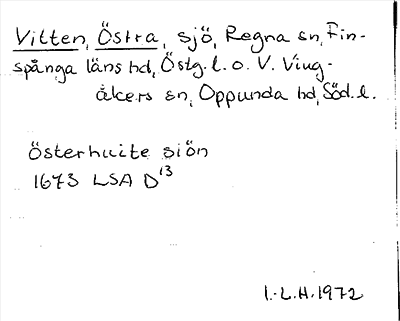 Vitten, Östra, sjö, Regna sn, Fin-
spånga läns hd, Östg. l. o. V. Ving-
åkers sn, Oppunda hd, Söd. l.
Österhuite siön
1673 LSA D13
I.-L.H. 1972